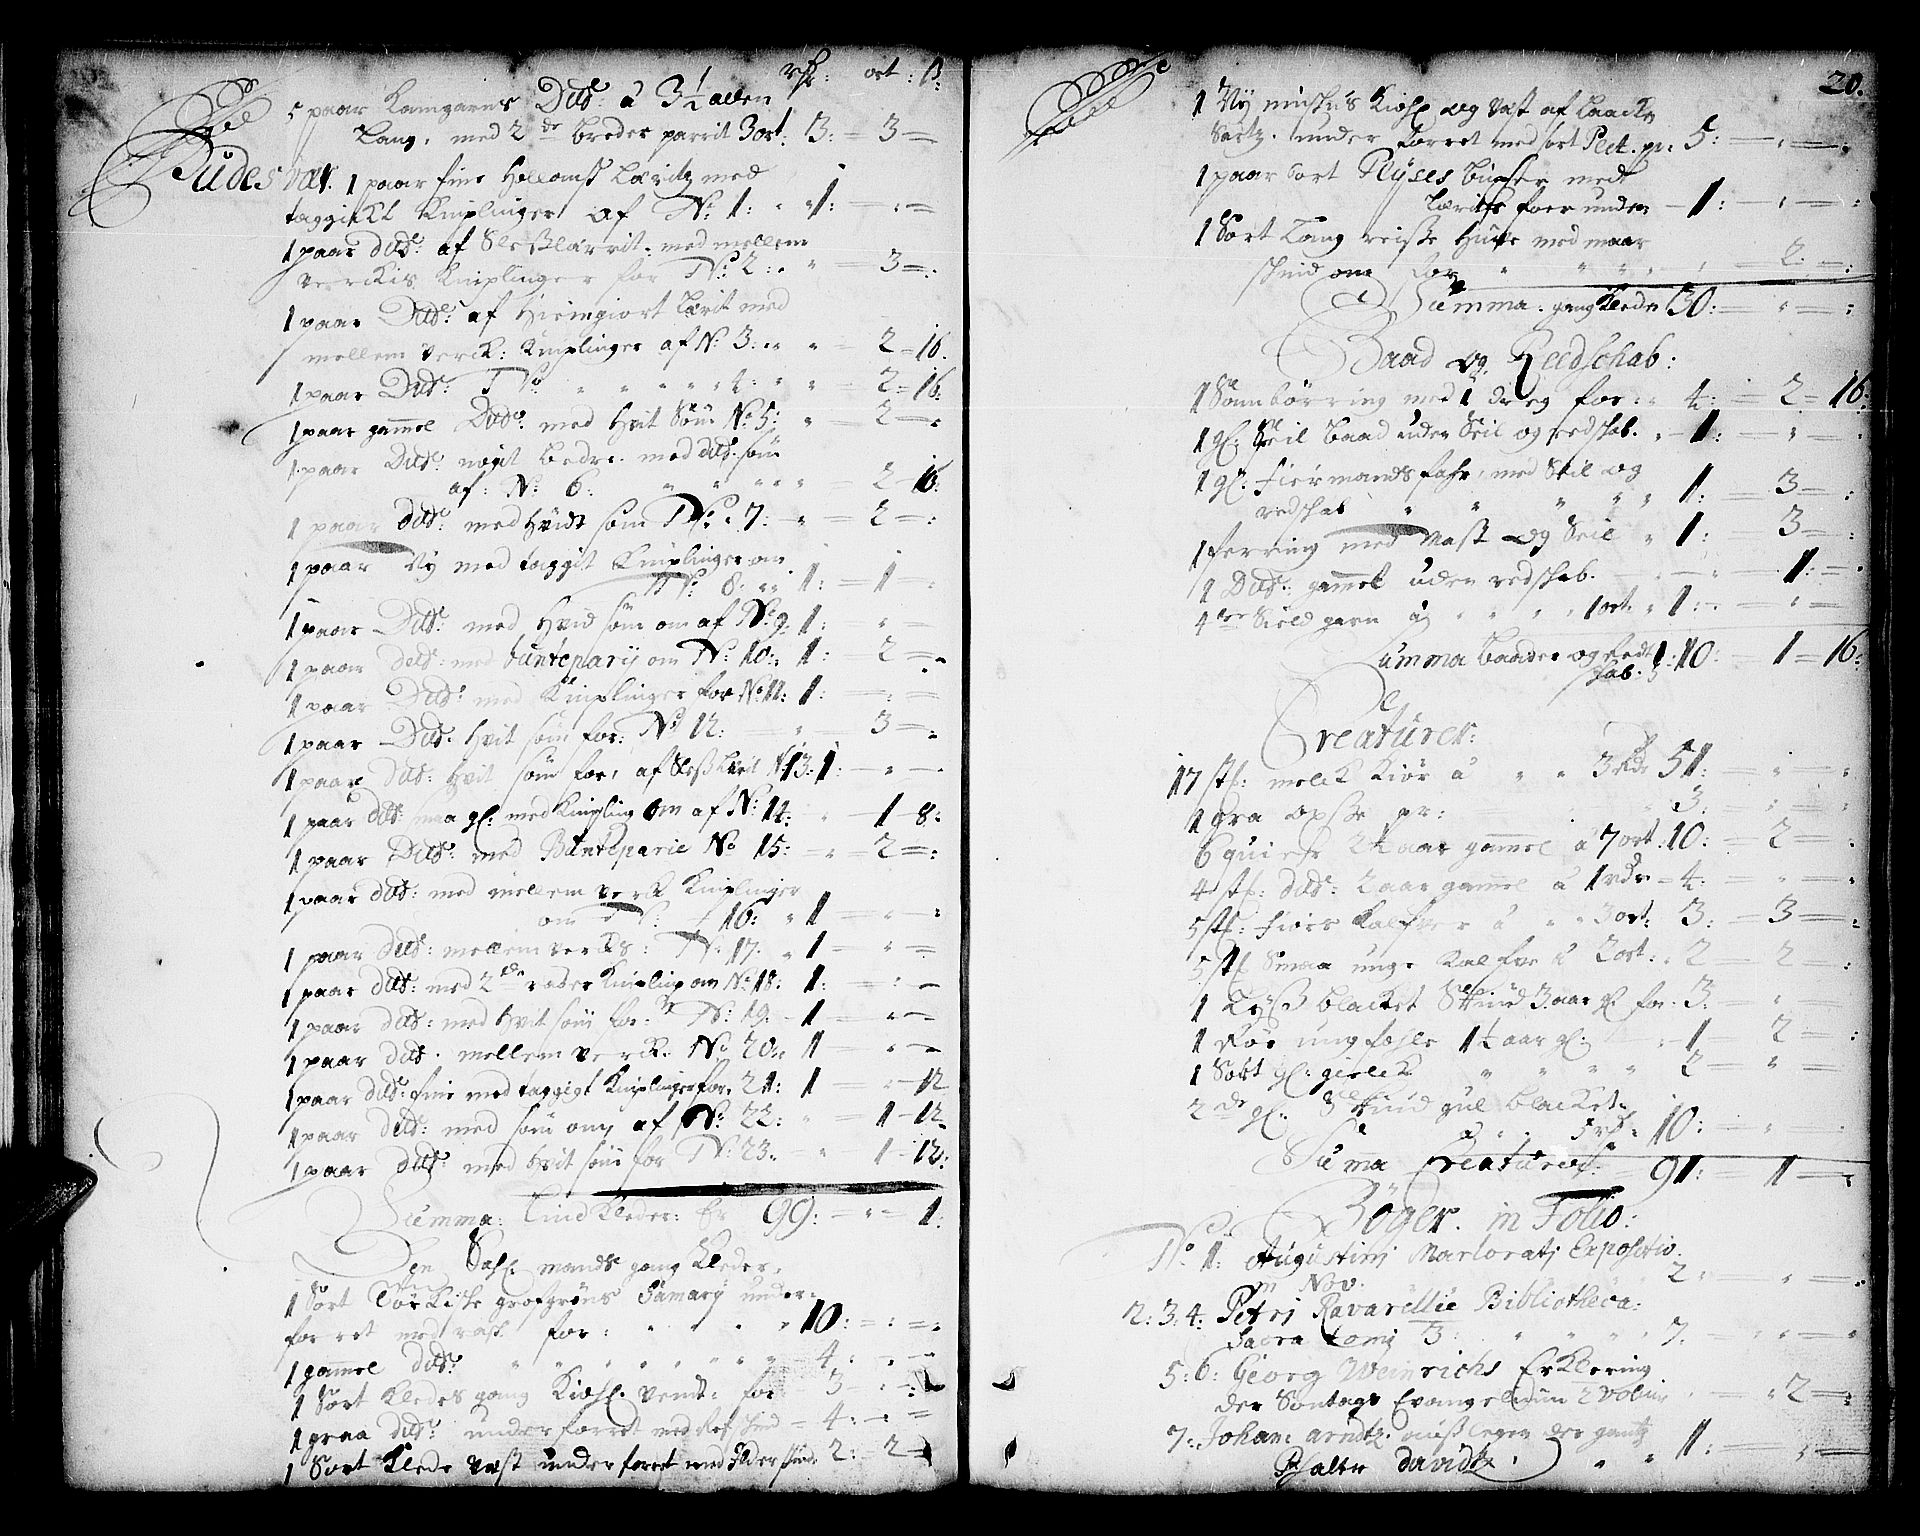 rdr: ort: ß
5 paar Kamgarns Ditto: a 3½ allen
Lang, med 2de breder parrit 3 ort. 3: = 3 =
Pudes var. 1 paar fine Hollands Lærritz med
taggickt Kniplinger af No: 1: " 1: = " =
1 paar ditto: af Sleslærrit. med mellem
verckis Kniplinger for No: 2: " = 3 = :
1 paar Ditto: af Hiemgiort Lærit med
mellem verck: Kniplinger af No: 3: " " = 2 = 16.
1 paar Ditto: No " " " 4: " = 2 = 16:
1 paar gammel Ditto: med Hvit Söm No: 5: " 2 = "
1 paar Ditto: nogit bedre. med ditto: söm
af: No: 6: " " " " 2 - 16:
1 paar ditto: med Hvidt söm No: 7: " = 2 = :
1 paar Ny med taggit Kniplinger om
No: 8: " " 1: = 1 "
1 paar Ditto: med Hvid söm om af No: 9: 1: " =
1 paar ditto: med bunteparij om No: 10: 1: = 2 =
1 paar Ditto: med Kniplinger for No: 11: 1: = :
1 paar Ditto: Hvit söm for: No 12: " 3 = :
1 paar ditto: Hvit söm for, af No 13: 1: = " =
1 paar ditto: smaa gl: med Knipling om af No: 14: " 1 - 8:
1 paar Ditto: med Bunteparie No 15: = " 2 = :
1 paar ditto: med mellem verck Kniplinger
om No: 16: " 1 = " = "
1 paar ditto: mellem vercks: No: 17. " 1 = " =
1 paar ditto: med 2de rader Knipling om No: 18: 1: = : =
1 paar ditto: med Hvit söm for: No: 19. - 1 = " =
1 paar ditto. mellem verck. No: 20: 1 = " =
1 paar ditto: fine med taggigt Kniplinger for. 21: 1 = " - 12
1 paar ditto: med söm om af No: 22: " 1 - 12
1 paar ditto: med Hvit söm for No: 23. = " 1 - 12:
Summa: Lind Kleder: Er 99: = " = 1:
Den Sahl: mands gang Kleder.
1 Sort Törkiske grofgröns Samarij under-
forret med rask for: " " " " 10: = : = "
1 gammel ditto: " " " " " " " 4: = " =
1 Sort Kledes gang Kiohl. vendt: for 3 - " =
1 graa ditto: under forret med = 4: = : =
1 Sort Klede vest under forret med 2: = 2 =
20.
1 Ny Kiohl og vest af
under forret med sort pr. 5: = " =
1 paar Sort Plyses buxser med
Lærits foer under - 1: = " = :
1 Sort Lang reise Hue med maar
skind om for " " " " = 2. = :
Summa. gang Kleder 30: = " = :
Baad og Reedschab:
1 Sambörring med 1 dreg for: " 4: = 2 = 16:
1 gl: Seil baad uden Seil og redskab. " 1: = " = "
1 gl. Fiermands fahr, med Seil og
redskab " " " " " 1: = 3 = :
1 ferring med mast og Seil " 1: = 3 = :
1 Ditto: gammel uden redskab. " " 1: = :
4re Sield garn a " " " 1 ort: " 1: = " =
Summa baader og Red-
skab: 10: = 1 = 16:
Creaturer:
17 st: melck Kiör a " " 3 rdr 51: = " = "
1 gra opse pr: 3. = " = "
6 qvier 2½ aar gammel a 7 ort. 10: = 2 = "
4 st: ditto: 2 aar gammel a 1 rdr = 4: = " = "
5 st: fiors Kalfver a " " 3 ort: 3: = 3 = :
5 st Smaa unge Kalfve a 2 ort: " 2 = 2 =
1 blacket Stud 3 aar gl for. 3: = " =
1 Röe ung fohle 1½ aar gl: " - 1 = 2 = :
1 Sort gl: " " " " 2 = " =
2de gl: gul blacket.
a 5 rdr - 10: = " =
Suma Creaturer: = 91: = 1 = :
Böger. in Folio:
No: 1: Augustinj Marloratj Expositio.
in Nov. 2 " = " = :
2: 3. 4: Petrj Ravarellie Bibliotheca:
Sacra tomj 3: " " " " 7. " " = "
5: 6: Georg Weinrichs Erklering
der Sontags Evangelium 2 volum " = " 2 = :
7: Johan: arndtz. ausslegen der gantz
Psalter davidtz. " " 1: = " =